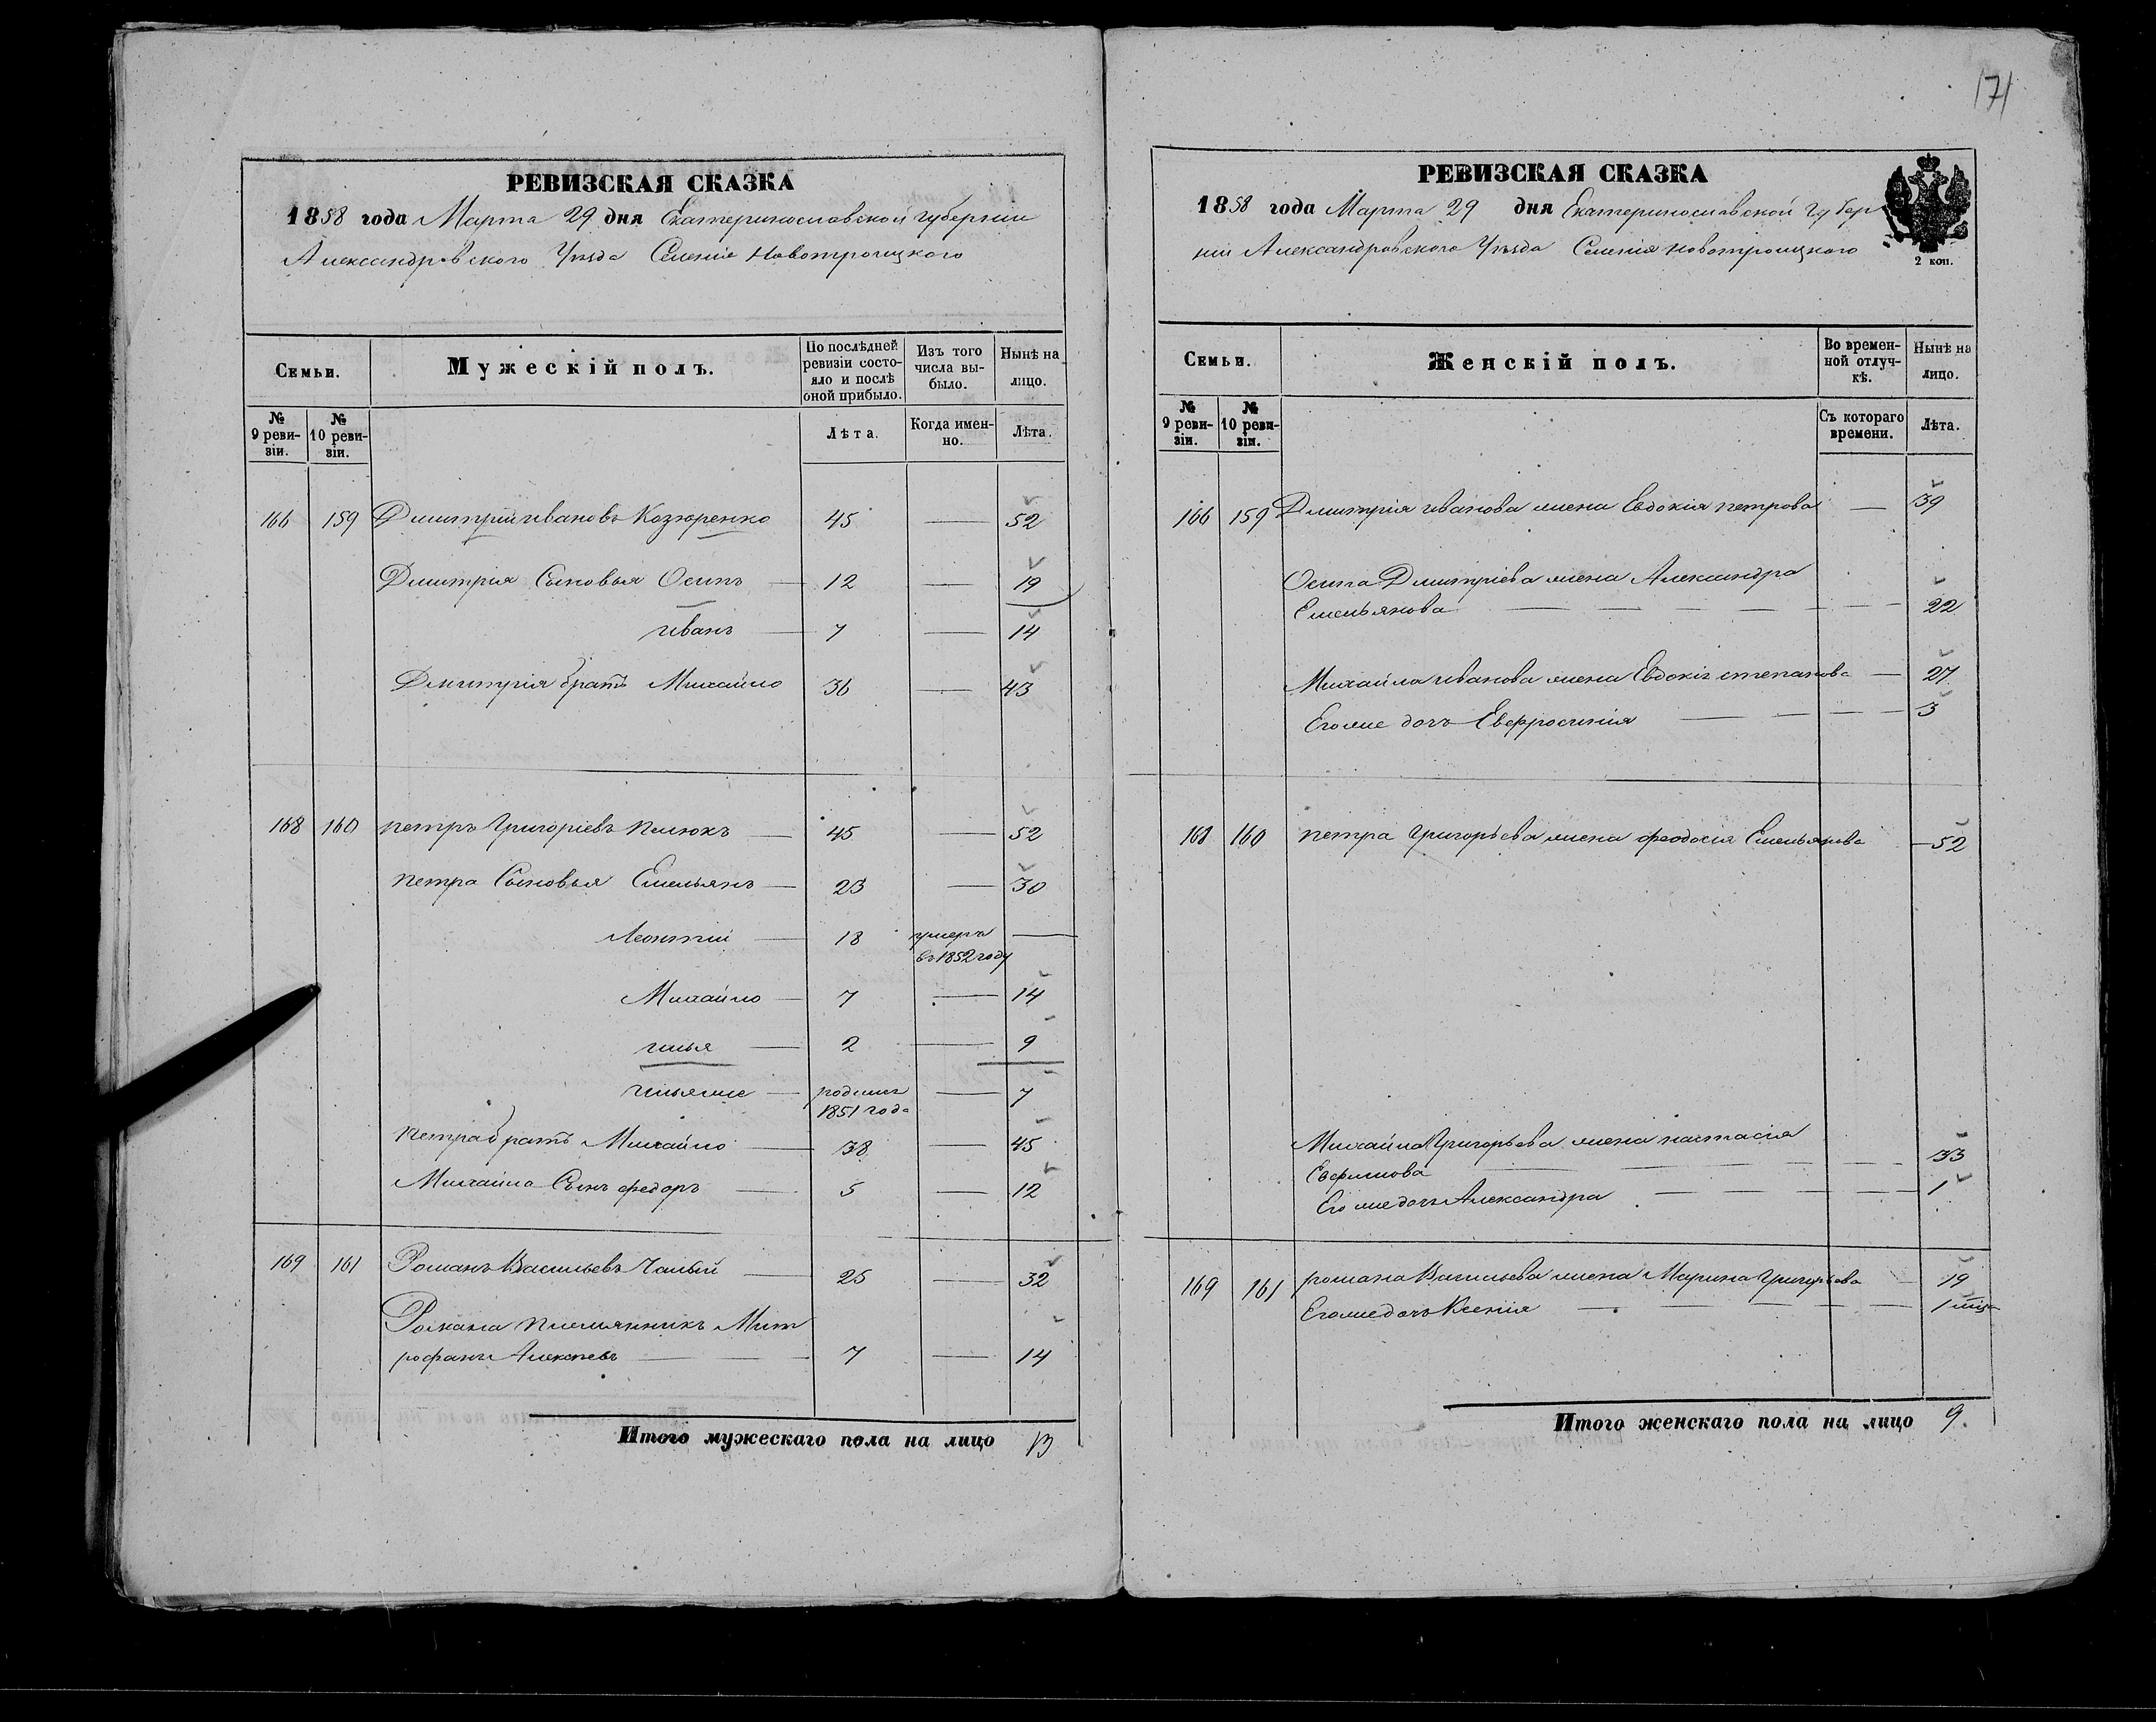 171
РЕВИЗСКАЯ СКАЗКА
1858 года Марта 29 дня Екатеринославской губернии
Александровского Уѣзда Селенія Новотроицкого
Семьи.
Мужескій полъ.
По послѣдней ревизіи состояло и послѣ оной прибыло.
Изъ того числа выбыло.
Нынѣ на лицо.
№ 9 ревизіи.
№ 10 ревизіи.
Лѣта.
Когда именно.
Лѣта.
166 159 Дмитрій Ивановъ Козюренко 45 — 52
Дмитрія Сыновья Осипъ — 12 — 19
Иванъ — 7 — 14
Дмитрія братъ Михайло 36 — 43
168 160 Петръ Григоріевъ — 45 — 52
Петра Сыновья Емельянъ — 23 — 30
Леонтій — 18 умеръ —
въ 1852 году
Михайло — 7 — 14
Илья — 2 — 9
Илья же — родился — 7
1851 года
Петра братъ Михайло — 38 — 45
Михайла Сынъ Федоръ — 5 — 12
169 161 Романъ Васильевъ Чалый — 25 — 32
Романа племянникъ Мит
рофанъ Алексѣевъ — 7 — 14
Итого мужескаго пола на лицо 13
РЕВИЗСКАЯ СКАЗКА
1858 года Марта 29 дня Екатеринославской Губер
ніи Александровского Уѣзда Селенія Новотроицкого
2 коп.
Семьи.
Женскій полъ.
Во временной отлучкѣ.
Нынѣ на лицо.
№ 9 ревизіи.
№ 10 ревизіи.
Съ котораго времени.
Лѣта.
166 159 Дмитрія Иванова жена Евдокія Петрова — 39
Осипа Дмитріева жена Александра
Емельянова — 22
Михайла Иванова жена Евдокія Степанова — 27
Его же дочь Евфросинія — 3
168 160 Петра Григорьева жена Феодосія Емельянова — 52
Михайла Григорьева жена Настасія
Ефимова — 33
Его же дочь Александра — 1
169 161 Романа Васильева жена Марина Григорьева — 19
Его же дочь Ксенія — 1 мѣся
Итого женскаго пола на лицо 9.